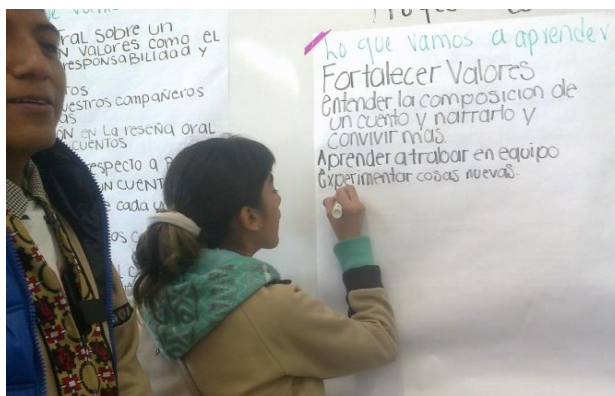 ral sobre un
N valores como el
responsabilidad y
ros
uestros compañeros
as
ÓN en La reseña oral
cuentos
espeto a
un cuent
cada u
Lo que vamos a aprender
Fortalecer Valores
entender la composicion de
un cuento y narrarlo y
convivir mas.
Aprender a trabar en equipo
experimentar cosas nuevas.